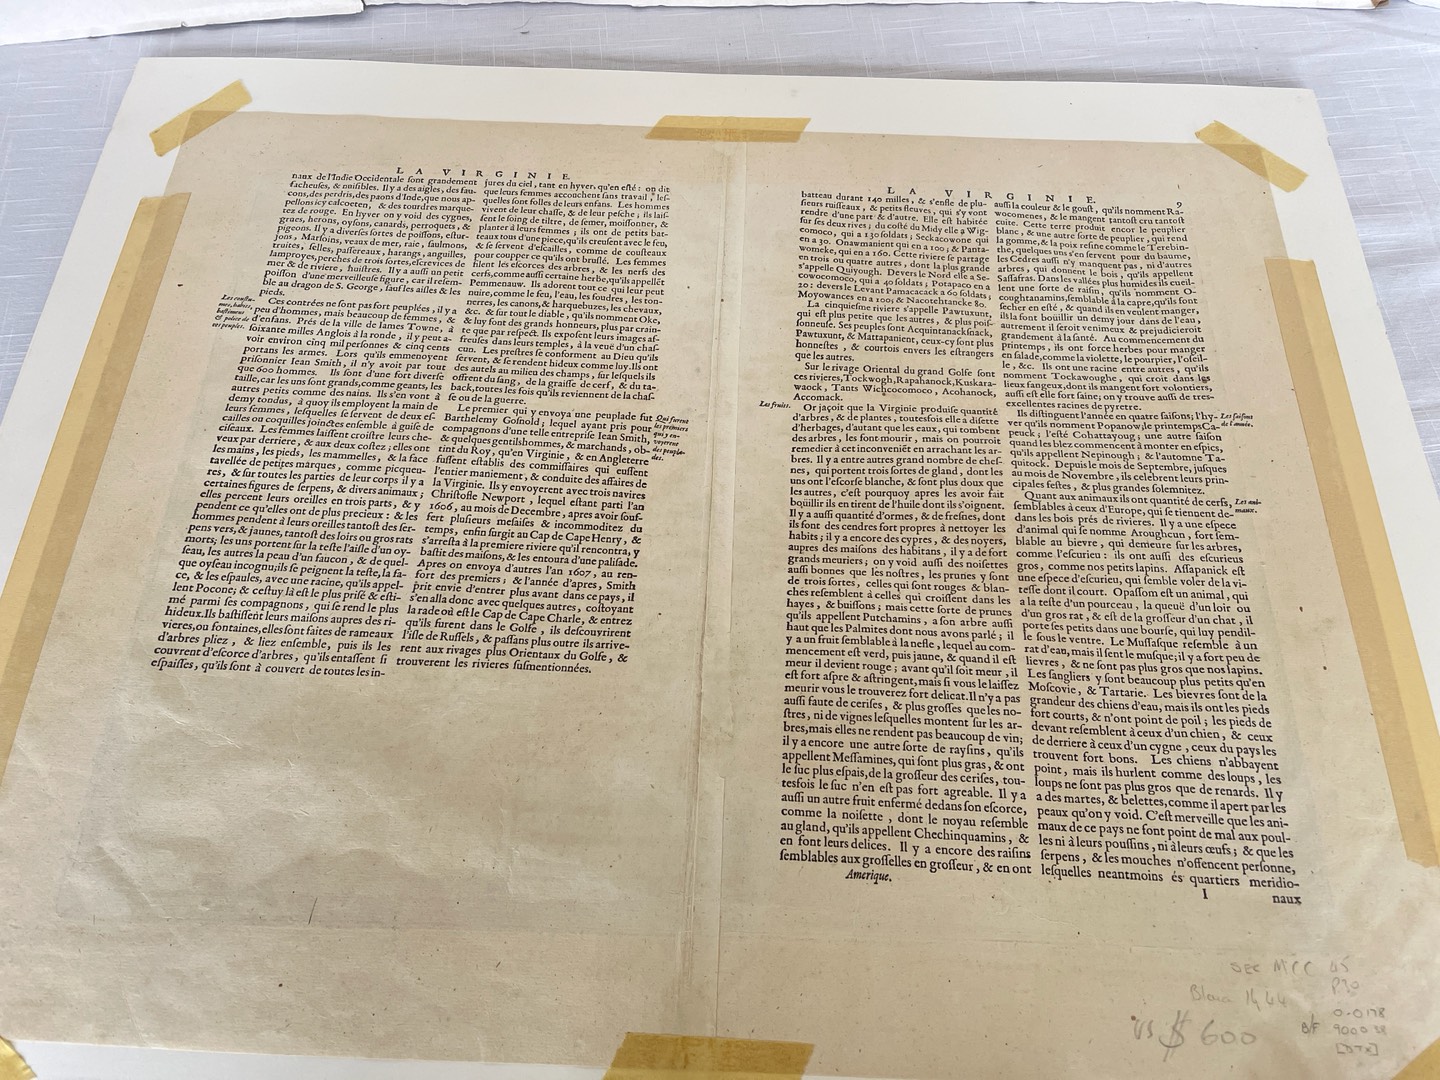 LA VIRGINIE.
naux de l'Indie Occidentale sont grandement
facheuses, & nuisibles. Il y a des aigles, des fau-
cons, des perdris, des paons d'Inde, que nous ap-
pellons icy calcoeten, & des tourdras marque-
tez de rouge. En hyver on y void des cygnes,
grues, herons, oysons, canards, perroquets, &
pigeons. Il y a diverses sortes de poissons, estur-
jons, Marsoins, veaux de mer, raie, saulmons,
truites, selles, passereaux, harangs, anguilles,
lamproyes, perches de trois sortes, escrevices de
mer & de riviere, huistres. Il y a aussi un petit
poisson d'une merveilleuse figure, car il resem-
ble au dragon de S. George, sauf les aisles & les
pieds.
Ces contrées ne sont pas fort peuplées, il y a
peu d'hommes, mais beaucoup de femmes, &
d'enfans. Prés de la ville de Iames Towne, à
soixante milles Anglois à la ronde, il y peut a-
voir environ cinq mil personnes & cinq cents
portans les armes. Lors qu'ils emmenoyent
prisonnier Iean Smith, il n'y avoit par tout
que 600 hommes. Ils sont d'une fort diverse
taille, car les uns sont grands, comme geants, les
autres petits comme des nains. Ils s'en vont à
demy tondus, à quoy ils employent la main de
leurs femmes, lesquelles se servent de deux es-
cailles ou coquilles joinctes ensemble à guise de
ciseaux. Les femmes laissent croistre leurs che-
veux par derriere, & aux deux costez; elles ont
les mains, les pieds, les mammelles, & la face
tavellée de petites marques, comme picqueu-
res, & sur toutes les parties de leur corps il y a
certaines figures de serpens, & divers animaux;
elles percent leurs oreilles en trois parts, & y
pendent ce qu'elles ont de plus precieux: & les
hommes pendent à leurs oreilles tantost des ser-
pens vers, & jaunes, tantost des loirs ou gros rats
morts; les uns portent sur la teste l'aisle d'un oy-
seau, les autres la peau d'un faucon, & de quel-
que oyseau incognu; ils se peignent la teste, la fa-
ce, & les espaules, avec une racine, qu'ils appel-
lent Pocone; & cestuy là est le plus prisé & esti-
mé parmi ses compagnons, qui se rend le plus
hideux. Ils bastissent leurs maisons aupres des ri-
vieres, ou fontaines, elles sont faites de rameaux
d'arbres pliez, & liez ensemble, puis ils les
couvrent d'escorce d'arbres, qu'ils entassent si
espaisses, qu'ils sont à couvert de toutes les in-
Les coustu-
mes, habits,
bastimens
& police de
ces peuples.
jures du ciel, tant en hyver, qu'en esté: on dit
que leurs femmes accouchent sans travail, les-
quelles sont folles de leurs enfans. Les hommes
vivent de leur chasse, & de leur pesche; ils lais-
sent le soing de filtre, de semer, moissonner, &
planter à leurs femmes; ils ont de petits bat-
teaux tous d'une piece, qu'ils creusent avec le feu,
& se servent d'escailles, comme de cousteaux
pour coupper ce qu'ils ont bruslé. Les femmes
filent les escorces des arbres, & les nerfs des
cerfs, comme aussi certaine herbe, qu'ils appellét
Pemmenauw. Ils adorent tout ce qui leur peut
nuire, comme le feu, l'eau, les foudres, les ton-
nerres, les canons, & harquebuzes, les chevaux,
&c. & sur tout le diable, qu'ils nomment Oke,
& luy font des grands honneurs, plus par crain-
te que par respect. Ils exposent leurs images af-
freuses dans leurs temples, à la veuë d'un chas-
cun. Les prestres se conforment au Dieu qu'ils
servent, & se rendent hideux comme luy. Ils ont
des autels au milieu des champs, sur lesquels ils
offrent du sang, de la graisse de cerf, & du ta-
back, toutes les fois qu'ils reviennent de la chas-
se ou de la guerre.
Le premier qui y envoya une peuplade fut
Barthelemy Gosnold; lequel ayant pris pour
compagnons d'une telle entreprise Iean Smith,
& quelques gentilshommes, & marchands, ob-
tint du Roy, qu'en Virginie, & en Angleterre
fussent establis des commissaires qui eussent
l'entier maniement, & conduite des affaires de
la Virginie. Ils y envoyerent avec trois navires
Christofle Newport, lequel estant parti l'an
1606, au mois de Decembre, apres avoir souf-
fert plusieurs mesaises & incommoditez du
temps, enfin surgit au Cap de Cape Henry, &
s'arresta à la premiere riviere qu'il rencontra, y
bastit des maisons, & les entoura d'une palisade.
Apres on envoya d'autres l'an 1607, au ren-
fort des premiers; & l'année d'apres, Smith
prit envie d'entrer plus avant dans ce pays, il
s'en alla donc avec quelques autres, costoyant
la rade où est le Cap de Cape Charle, & entrez
qu'ils furent dans le Golfe, ils descouvrirent
l'isle de Russels, & passans plus outre ils arrive-
rent aux rivages plus Orientaux du Golfe, &
trouverent les rivieres susmentionnées.
Qui furent
les premiers
qui y en-
voyerent
des peupla-
des.
LA VIRGINIE. 9
batteau durant 140 milles, & s'enfle de plu-
sieurs ruisseaux, & petits fleuves, qui s'y vont
rendre d'une part & d'autre. Elle est habitée
sur ses deux rives; du costé du Midy elle a Wig-
comoco, qui a 130 soldats; Seckacowone qui
en a 30. Onawmanient qui en a 100; & Panta-
womeke, qui en a 160. Cette riviere se partage
en trois ou quatre autres, dont la plus grande
s'appelle Quiyough. Devers le Nord elle a Se-
cowocomoco, qui a 40 soldats; Potapaco en a
20: devers le Levant Pamacacack a 60 soldats;
Moyowances en a 100; & Nacotehtancke 80.
La cinquiesme riviere s'appelle Pawtuxunt,
qui est plus petite que les autres, & plus pois-
sonneuse. Ses peuples sont Acquintanacksuack,
Pawtuxunt, & Mattapanient, ceux-cy sont plus
honnestes, & courtois envers les estrangers
que les autres.
Sur le rivage Oriental du grand Golfe sont
ces rivieres, Tockwogh, Rapahanock, Kuskara-
waock, Tants Wichcocomoco, Acohanock,
Accomack.
Or jaçoit que la Virginie produise quantité
d'arbres, & de plantes, toutesfois elle a disette
d'herbages, d'autant que les eaux, qui tombent
des arbres, les font mourir, mais on pourroit
remedier a cet inconveniét en arrachant les ar-
bres. Il y a entre autres grand nombre de ches-
nes, qui portent trois sortes de gland, dont les
uns ont l'escorse blanche, & sont plus doux que
les autres, c'est pourquoy apres les avoir fait
boüillir ils en tirent de l'huile dont ils s'oignent.
Il y a aussi quantité d'ormes, & de fresnes, dont
ils font des cendres fort propres à nettoyer les
habits; il y a encore des cypres, & des noyers,
aupres des maisons des habitans, il y a de fort
grands meuriers; on y void aussi des noisettes
aussi bonnes que les nostres, les prunes y sont
de trois sortes, celles qui sont rouges & blan-
ches resemblent à celles qui croissent dans les
hayes, & buissons; mais cette sorte de prunes
qu'ils appellent Putchamins, a son arbre aussi
haut que les Palmites dont nous avons parlé; il
y a un fruit semblable à la nesle, lequel au com-
mencement est verd, puis jaune, & quand il est
meur il devient rouge; avant qu'il soit meur, il
est fort aspre & astringent, mais si vous le laissez
meurir vous le trouverez fort delicat. Il n'y a pas
aussi faute de cerises, & plus grosses que les no-
stres, ni de vignes lesquelles montent sur les ar-
bres, mais elles ne rendent pas beaucoup de vin;
il y a encore une autre sorte de raysins, qu'ils
appellent Messamines, qui sont plus gras, & ont
le suc plus espais, de la grosseur des cerises, tou-
tesfois le suc n'en est pas fort agreable. Il y a
aussi un autre fruit enfermé dedans son escorce,
comme la noisette, dont le noyau resemble
au gland, qu'ils appellent Chechinquamins, &
en font leurs delices. Il y a encore des raisins
semblables aux grosselles en grosseur, & en ont
Amerique.
Les fruits.
aussi la couleur & le goust, qu'ils nomment Ra-
wocomenes, & le mangent tantost cru tantost
cuite. Cette terre produit encor le peuplier
blanc, & une autre sorte de peuplier, qui rend
la gomme, & la poix resine comme le Terebin-
the, quelques uns s'en servent pour du baume
les Cedres aussi n'y manquent pas, ni d'autres
arbres, qui donnent le bois, qu'ils appellent
Sassafras. Dans les vallées plus humides ils cueil-
lent une sorte de raisin, qu'ils nomment O-
coughtanamins, semblable à la capre, qu'ils font
secher en esté, & quand ils en veulent manger,
ils la font boüillir un demy jour dans de l'eau,
autrement il seroit venimeux & prejudicieroit
grandement à la santé. Au commencement du
printemps, ils ont force herbes pour manger
en salade, comme la violette, le pourpier, l'oseil-
le, &c. Ils ont une racine entre autres, qu'ils
nomment Tockawoughe, qui croit dans les
lieux fangeux, dont ils mangent fort volontiers,
aussi est elle fort saine; on y trouve aussi de tres-
excellentes racines de pyretre.
Ils distinguent l'année en quatre saisons; l'hy-
ver qu'ils nomment Popanow; le printemps Ca-
peuck; l'esté Cohattayoug; une autre saison
quand les blez commencent à monter en espics,
qu'ils appellent Nepinough; & l'automne Ta-
quitock. Depuis le mois de Septembre, jusques
au mois de Novembre, ils celebrent leurs prin-
cipales festes, & plus grandes solemnitez.
Quant aux animaux ils ont quantité de cerfs,
semblables à ceux d'Europe, qui se tiennent de-
dans les bois prés de rivieres. Il y a une espece
d'animal qui se nomme Aroughcun, fort sem-
blable au bievre, qui demeure sur les arbres,
comme l'escurieu: ils ont aussi des escurieus
gros, comme nos petits lapins. Assapanick est
une espece d'escurieu, qui semble voler de la vi-
tesse dont il court. Opassom est un animal, qui
a la teste d'un pourceau, la queuë d'un loir ou
d'un gros rat, & est de la grosseur d'un chat, il
porte ses petits dans une bourse, qui luy pendil-
le sous le ventre. Le Mussasque resemble à un
rat d'eau, mais il sent le musque; il y a fort peu de
lievres, & ne sont pas plus gros que nos lapins.
Les sangliers y sont beaucoup plus petits qu'en
Moscovie, & Tartarie. Les bievres sont de la
grandeur des chiens d'eau, mais ils ont les pieds
fort courts, & n'ont point de poil; les pieds de
devant resemblent à ceux d'un chien, & ceux
de derriere à ceux d'un cygne, ceux du pays les
trouvent fort bons. Les chiens n'abbayent
point, mais ils hurlent comme des loups, les
loups ne sont pas plus gros que de renards. Il y
a des martes, & belettes, comme il apert par les
peaux qu'on y void. C'est merveille que les ani-
maux de ce pays ne font point de mal aux poul-
les ni à leurs poussins, ni à leurs œufs; & que les
serpens, & les mouches n'offencent personne,
lesquelles neantmoins és quartiers meridio-
I naux
Les saisons
de l'année.
Les ani-
maux.
SEC MCC 45
P70
Blaeu 1644
0-0178
US $ 600
B/F 9000 28
[DTX]